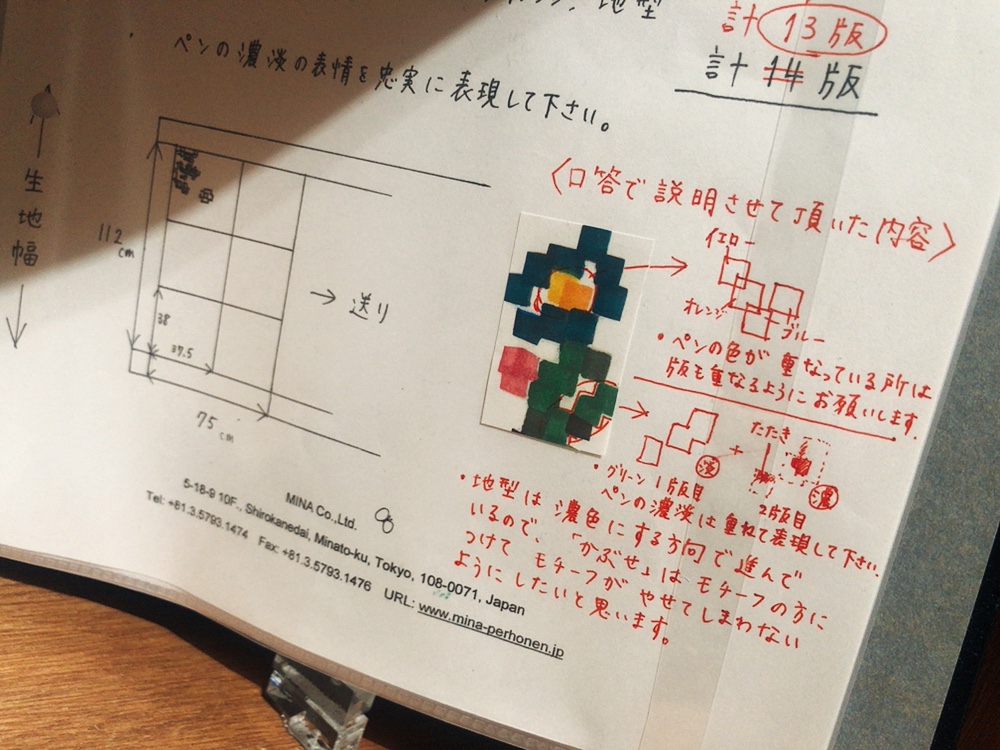 地型
計 13版
計 14 版
ペンの濃淡の表情を忠実に表現して下さい。
生地幅
112
cm
38
37.5
75 cm
→ 送り
〈口答で説明させて頂いた内容〉
イエロー
オレンジ
ブルー
・ペンの色が重なっている所は
版も重なるようにお願いします。
たたき
淡
+
濃
グリーン 1版目
2版目
・ペンの濃淡は重ねて表現して下さい。
・地型は濃色にする方向で進んで
いるので、「かぶせ」はモチーフの方に
つけて モチーフが やせてしまわない
ようにしたいと思います。
MINA Co.,Ltd.
5-18-9 10F., Shirokanedai, Minato-ku, Tokyo, 108-0071, Japan
Tel: +81.3.5793.1474 Fax: +81.3.5793.1476 URL: www.mina-perhonen.jp